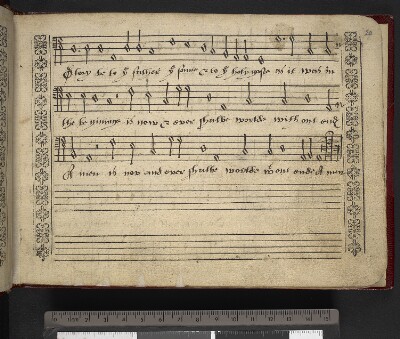 Glory be to yͤ father yͤ sonne & to yͤ holy goste as it was in
the beginninge is now & ever shalbe worlde with out end
A men is now and ever shalbe worlde wͭ out ende A men